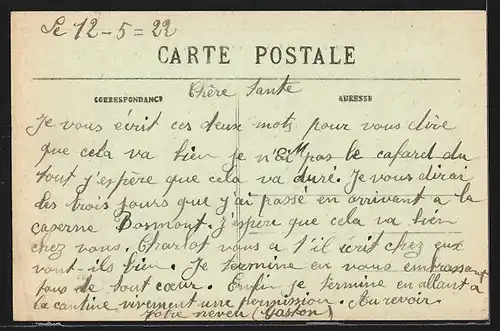 Le 12-5=22
CARTE POSTALE
CORRESPONDANCE
ADRESSE
Chère tante
Je vous écrit ces deux mots pour vous dire
que cela va bien je n'ai pas le cafard du
tout j'espère que cela va duré. Je vous dirai
les trois jours que j'ai passé en arrivant a la
caserne j'espire que cela va bien
chez vous. Charlot vous a t'il écrit chez eux
vont-ils bien. Je termine en vous embrassant
tous de tout cœur. Enfin je termine en allant a
la cantine vivement une permission. Au revoir.
votre neveu (Gaston)